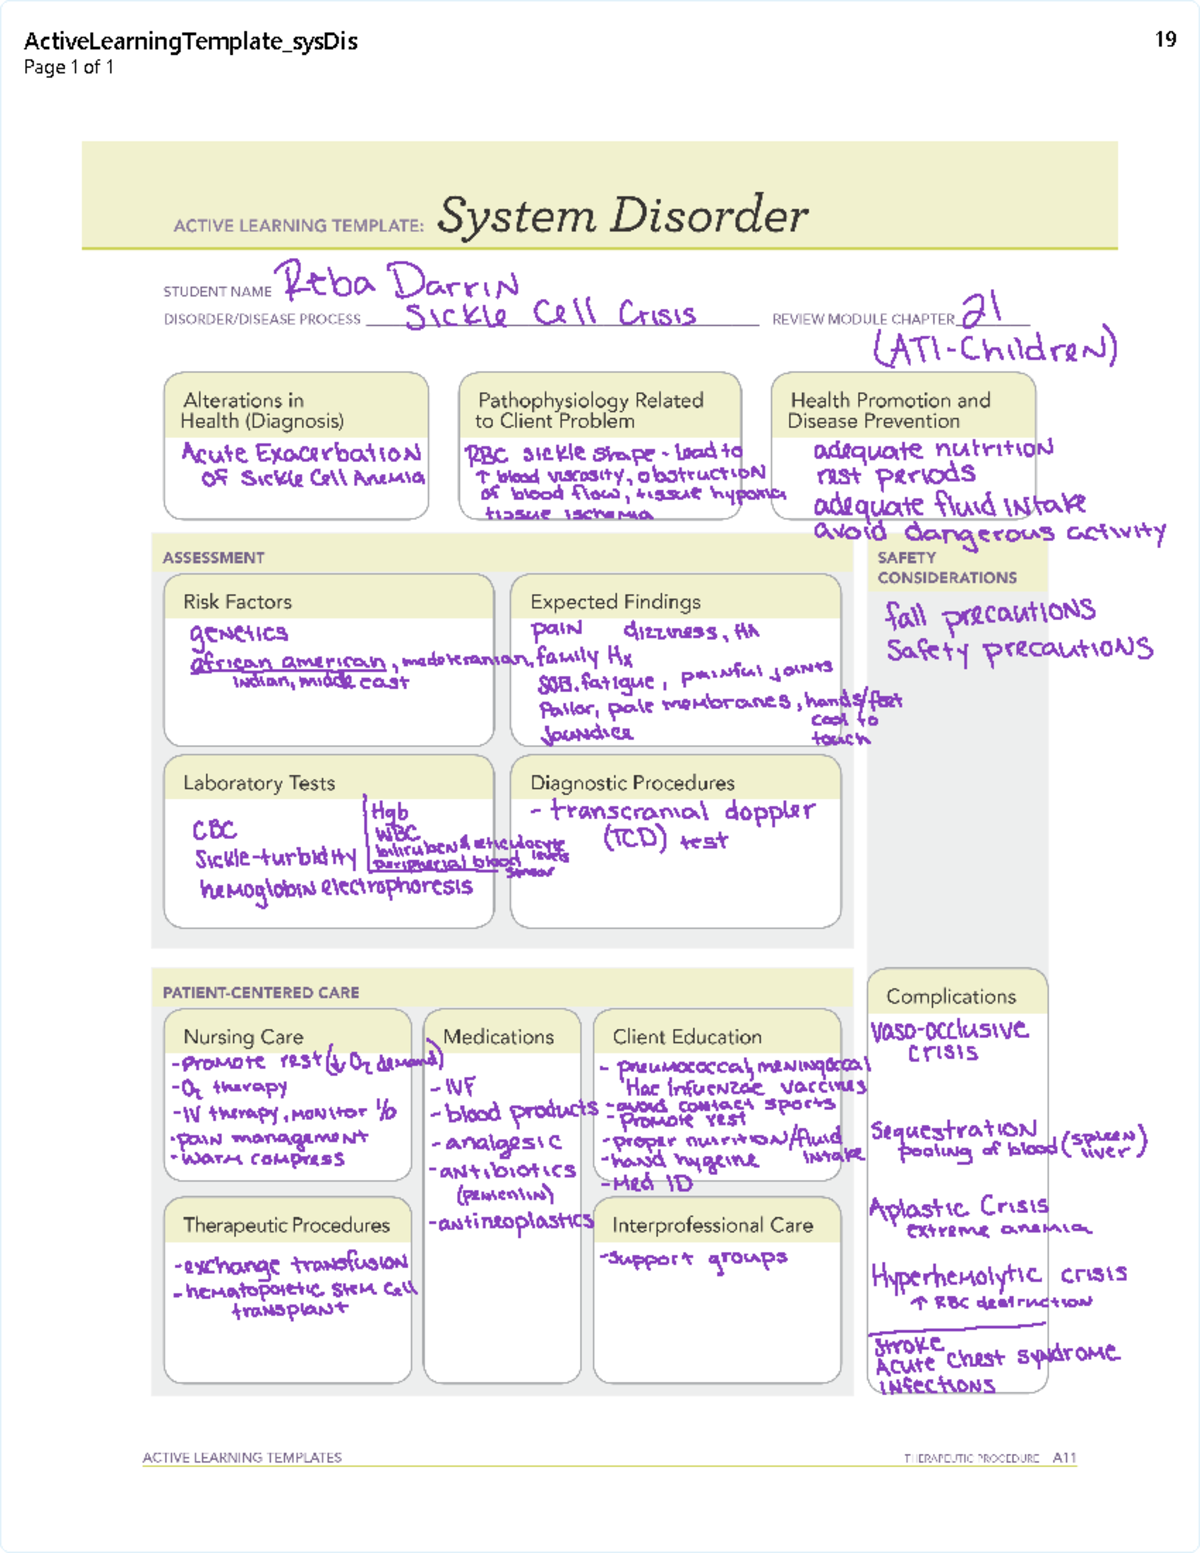 ActiveLearningTemplate_sysDis
Page 1 of 1
19
ACTIVE LEARNING TEMPLATE: System Disorder
STUDENT NAME Reba Darrin
DISORDER/DISEASE PROCESS Sickle Cell Crisis
REVIEW MODULE CHAPTER 21
(ATI-Children)
Alterations in
Health (Diagnosis)
Acute Exacerbation
of Sickle Cell Anemia
Pathophysiology Related
to Client Problem
RBC sickle shape - lead to
↑ blood viscosity, obstruction
of blood flow, tissue hypoxia
tissue ischemia
Health Promotion and
Disease Prevention
adequate nutrition
rest periods
adequate fluid intake
avoid dangerous activity
ASSESSMENT
SAFETY
CONSIDERATIONS
fall precautions
Safety precautions
Risk Factors
genetics
african american, mediteranian,
indian, middle east
Expected Findings
pain dizziness, HA
family Hx
SOB, fatigue, painful joints
Pallor, pale membranes, hands/feet
cool to
touch
Jaundice
Laboratory Tests
CBC
Sickle-turbidity
hemoglobin electrophoresis
Hgb
WBC
biliruben & reticulocyte
levels
peripherial blood
smear
Diagnostic Procedures
- transcranial doppler
(TCD) test
PATIENT-CENTERED CARE
Nursing Care
-promote rest (↓ O2 demand)
-O2 therapy
-IV therapy, monitor I/O
-pain management
-warm compress
Medications
-IVF
-blood products
-analgesic
-antibiotics
(penicillin)
-antineoplastics
Client Education
- pneumococcal, meningococcal
Hae infuenzae vaccines
-avoid contact sports
-Promote rest
-proper nutrition/fluid
intake
-hand hygeine
-Med ID
Therapeutic Procedures
-exchange transfusion
-hematopoietic stem cell
transplant
Interprofessional Care
-support groups
Complications
vaso-occlusive
crisis
Sequestration
pooling of blood (spleen
liver)
Aplastic Crisis
extreme anemia
Hyperhemolytic crisis
↑ RBC destruction
Stroke
Acute Chest syndrome
infections
ACTIVE LEARNING TEMPLATES
THERAPEUTIC PROCEDURE A11